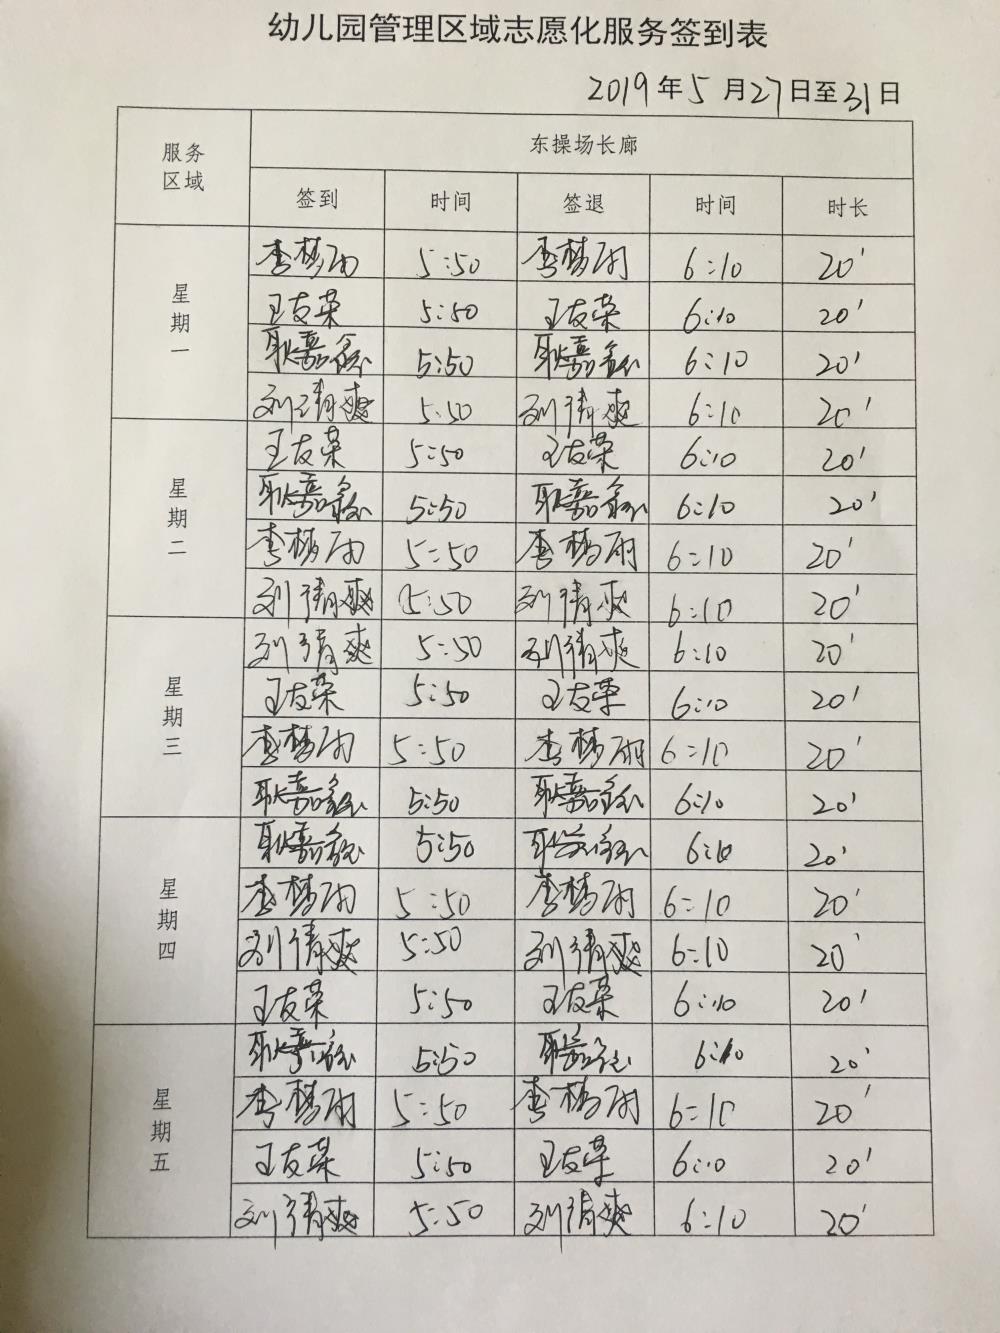 幼儿园管理区域志愿化服务签到表
2019年5月27日至31日
服务区域 东操场长廊
签到 时间 签退 时间 时长
星期一
李梦雨 5:50 李梦雨 6:10 20'
王友荣 5:50 王友荣 6:10 20'
耿嘉鑫 5:50 耿嘉鑫 6:10 20'
刘清爽 5:50 刘清爽 6:10 20'
星期二
王友荣 5:50 王友荣 6:10 20'
耿嘉鑫 5:50 耿嘉鑫 6:10 20'
李梦雨 5:50 李梦雨 6:10 20'
刘清爽 5:50 刘清爽 6:10 20'
星期三
刘清爽 5:50 刘清爽 6:10 20'
王友荣 5:50 王友荣 6:10 20'
李梦雨 5:50 李梦雨 6:10 20'
耿嘉鑫 5:50 耿嘉鑫 6:10 20'
星期四
耿嘉鑫 5:50 耿嘉鑫 6:10 20'
李梦雨 5:50 李梦雨 6:10 20'
刘清爽 5:50 刘清爽 6:10 20'
王友荣 5:50 王友荣 6:10 20'
星期五
耿嘉鑫 5:50 耿嘉鑫 6:10 20'
李梦雨 5:50 李梦雨 6:10 20'
王友荣 5:50 王友荣 6:10 20'
刘清爽 5:50 刘清爽 6:10 20'